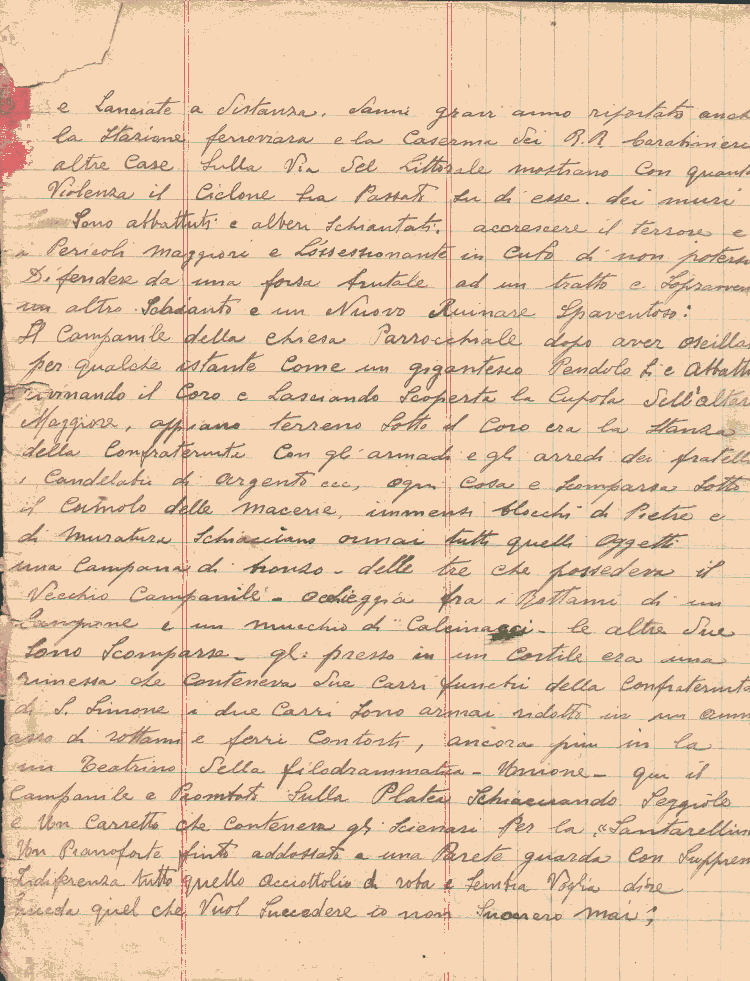 e Lanciate a distanza. danni gravi anno riportato anch
la Stazione ferroviara e la Caserma dei R.R. Carabinieri
altre Case Sulla Via del Littorale mostrano Con quanta
Violenza il Ciclone ha Passato su di esse. dei muri
Sono abbattuti e alberi Schiantati. accrescere il terrore e
a Pericoli maggiori e L'ossessionante in Cubo di non poters
Difendere da una forsa brutale ad un tratto e Sopraven
un altro Schianto e un Nuovo Ruinare Spaventoso:
Il Campanile della chiesa Parrocchiale dopo aver oscilla
per qualche istante Come un gigantesco Pendolo Si e Abbatt
rivinando il Coro e Lasciando Scoperta la Cupola dell'altar
Maggiore, appiano terreno Sotto il Coro era la Stanza
della Confraternita Con gli armadi e gli arredi dei fratelli
i Candelabri di argento ecc, ogni Cosa e Scomparsa Sotto
il Cumolo delle macerie, immensi blocchi di Pietre e
di muratura Schiacciano ormai tutti quelli Oggetti
una Campana di bronso - delle tre che possedeva il
Vecchio Campanile - occhieggia fra i Rottami di un
Lampione e un mucchio di Calcinacci - le altre due
Sono Scomparse - gli presso in un Cortile era una
rimessa che Conteneva due Carri funebri della Confraternita
di S. Simone i due Carri Sono armai ridotti in un amm
asso di rottami e ferri Contorti, ancora piu in la
un Teatrino della filodrammatica - Unione - qui il
Campanile e Piombato Sulla Platea Schiacciando Seggiole
e Un Carretto che Conteneva gli Scienari Per la "Santarellina
Un Pianoforte finto addossato a una Parete guarda Con Suppren
Indiferenza tutto quello acciottolio di roba e Sembra Voglia dire
Suceda quel che Vuol Succedere io non Suonero mai;